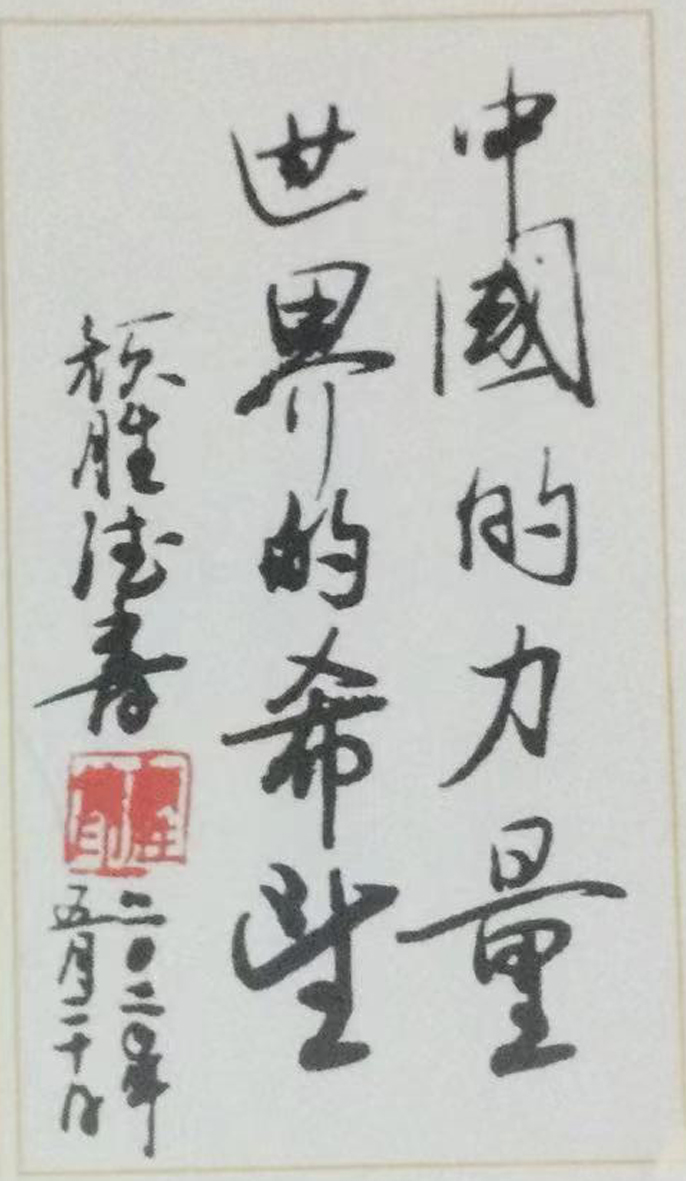 中國的力量
世界的希望
顾胜德书
二〇二〇年
五月二十日